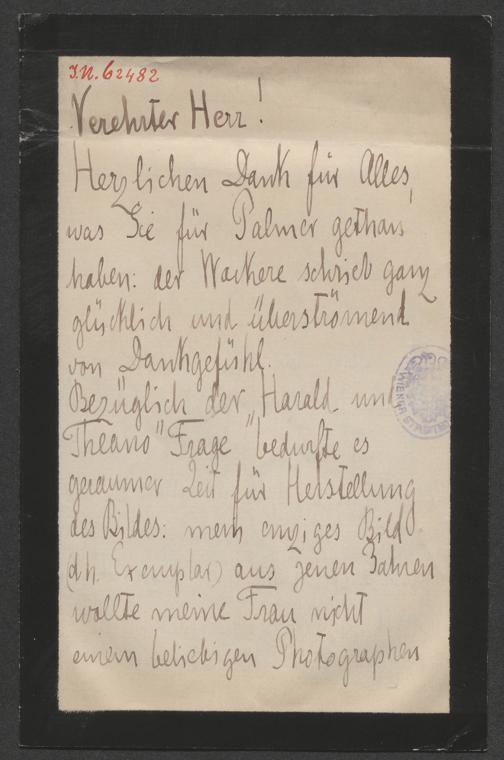 I.N. 62482
Verehrter Herr!
Herzlichen Dank für Alles,
was Sie für Palmer gethan
haben: der Wackere schrieb ganz
glücklich und überströmend
von Dankgefühl.
Bezüglich der „Harald und
Theano" Frage bedurfte es
geraumer Zeit für Herstellung
des Bildes: mein einziges Bild
(dh. Exemplar) aus jenen Jahren
wollte meine Frau nicht
einem beliebigen Photographen
WIENER